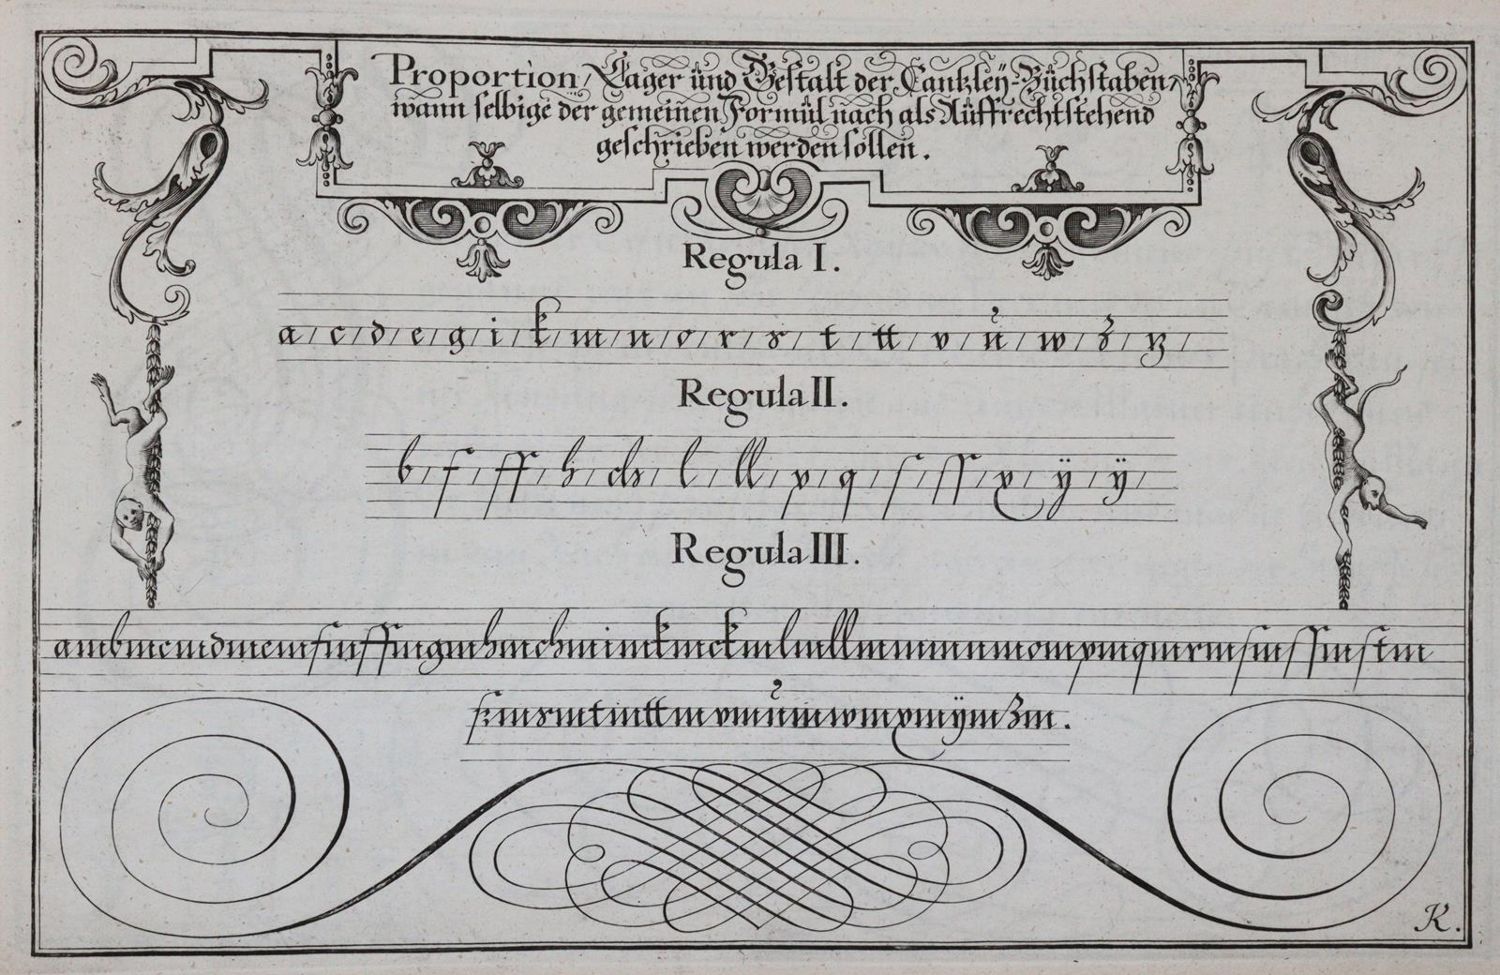 Proportion, Lager ünd Gestalt der Cantzleÿ-Büchstaben,
wann selbige der gemeinen Formül nach als Aüffrechtstehend
geschrieben werden sollen.
Regula I.
a/c/d/e/g/i/k/m/n/o/r/s/t/tt/v/ů/w/z/tz/
Regula II.
b/f/ff/h/ch/l/ll/p/q/ſ/ſſ/x/ÿ/ÿ/
Regula III.
ambmcmdmemfmffmgmhmchmimkmckmlmllmmmnmompmqmrmſmſſmſtm
ßmsmtmttmvmůmwmxmÿmzm.
K.